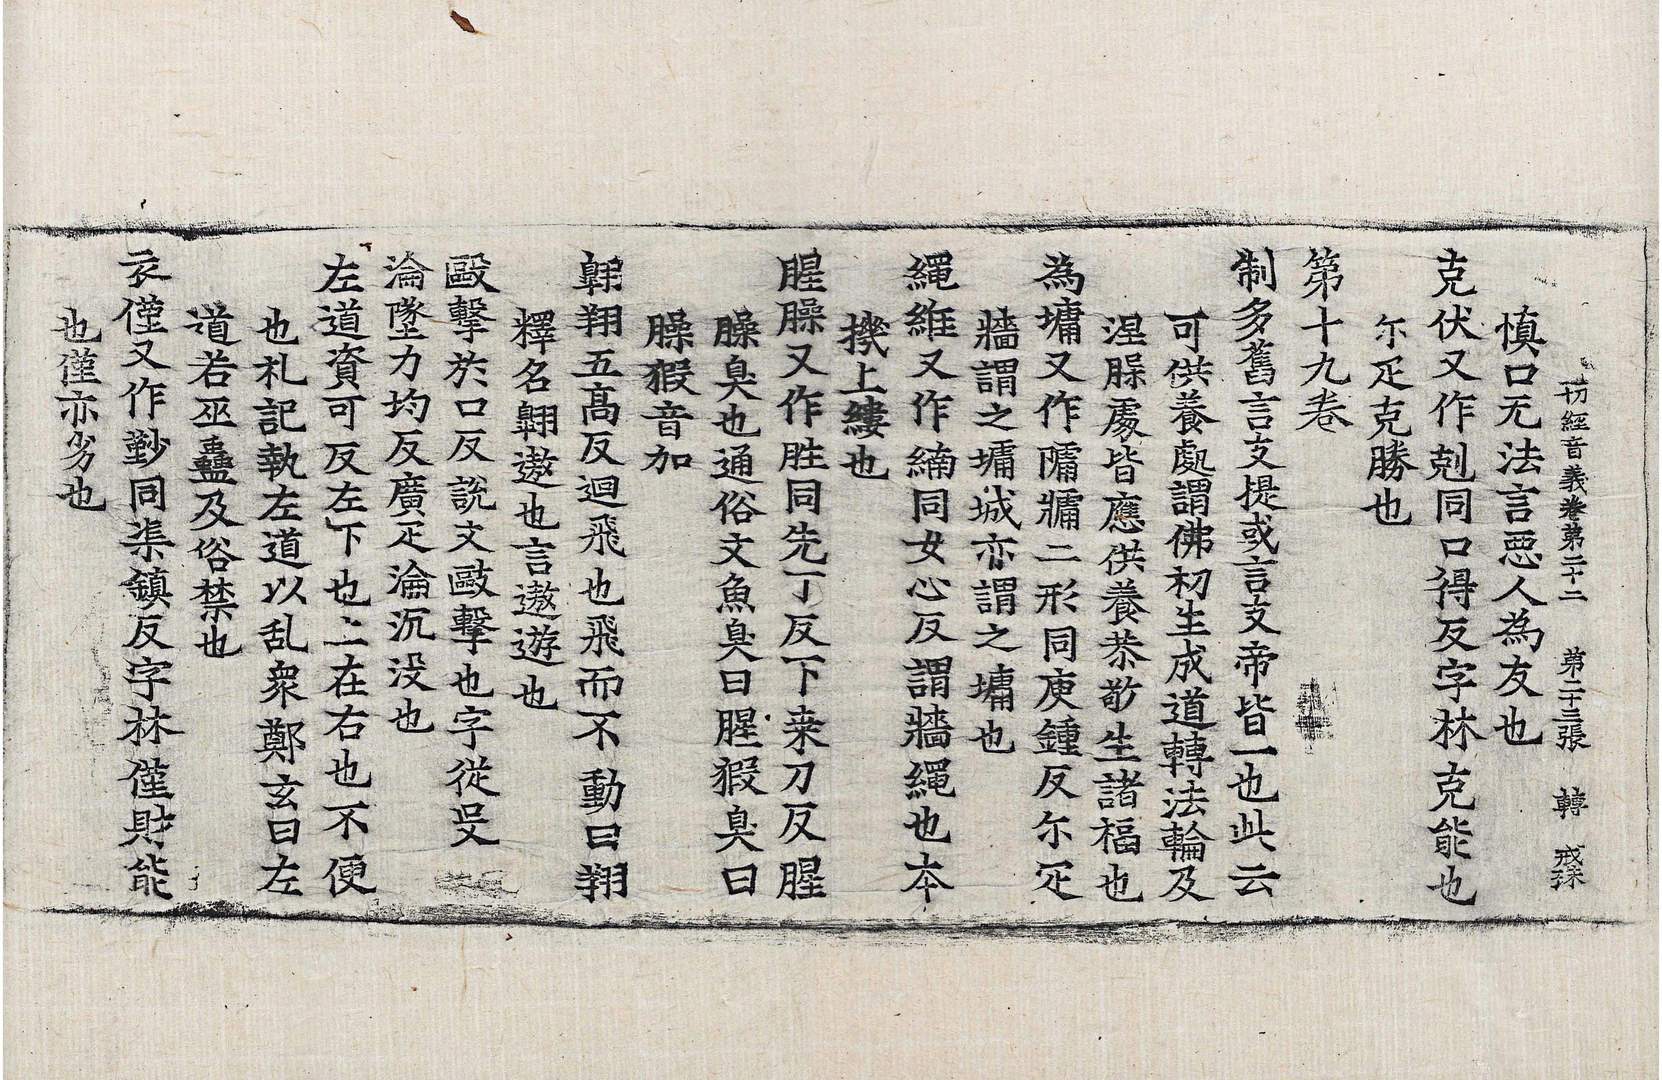 切經音義卷第二十二 第二十三張 轉 戒深
慎口无法言惡人為友也
克伏又作剋同口得反字林克能也
尓疋克勝也
第十九卷
制多舊言支提或言支帝皆一也此云
可供養處謂佛初生成道轉法輪及
涅躶處皆應供養恭敬生諸福也
為墉又作𨻱牗二形同庾鍾反尓疋
牆謂之墉城亦謂之墉也
繩維又作緬同女心反謂牆繩也夲
機上縷也
腥臊又作胜同先丁反下来刀反腥
臊臭也通俗文魚臭曰腥猳臭曰
臊猳音加
翱翔五髙反迴飛也飛而不動曰翔
釋名翱遨也言遨遊也
毆擊於口反說文毆擊也字從殳
淪墜力均反廣疋淪沉没也
左道資可反左下也亠在右也不便
也札記執左道以乱衆鄭玄曰左
道若巫蠱及俗禁也
衣僅又作𠢕同渠鎮反字林僅財能
也僅亦劣也